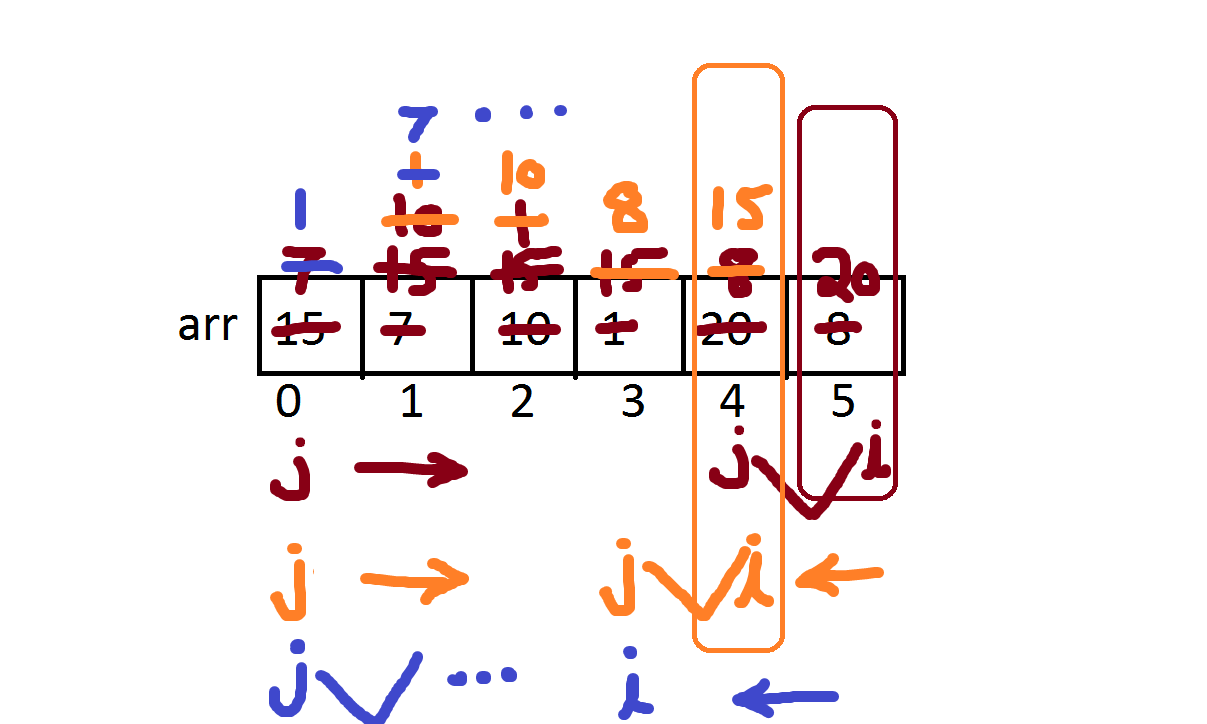 7 . . .
1 10
1 10 1 8 15
7 15 15 15 8 20
arr 15 7 10 1 20 8
0 1 2 3 4 5
j j i
j j i
j ... i